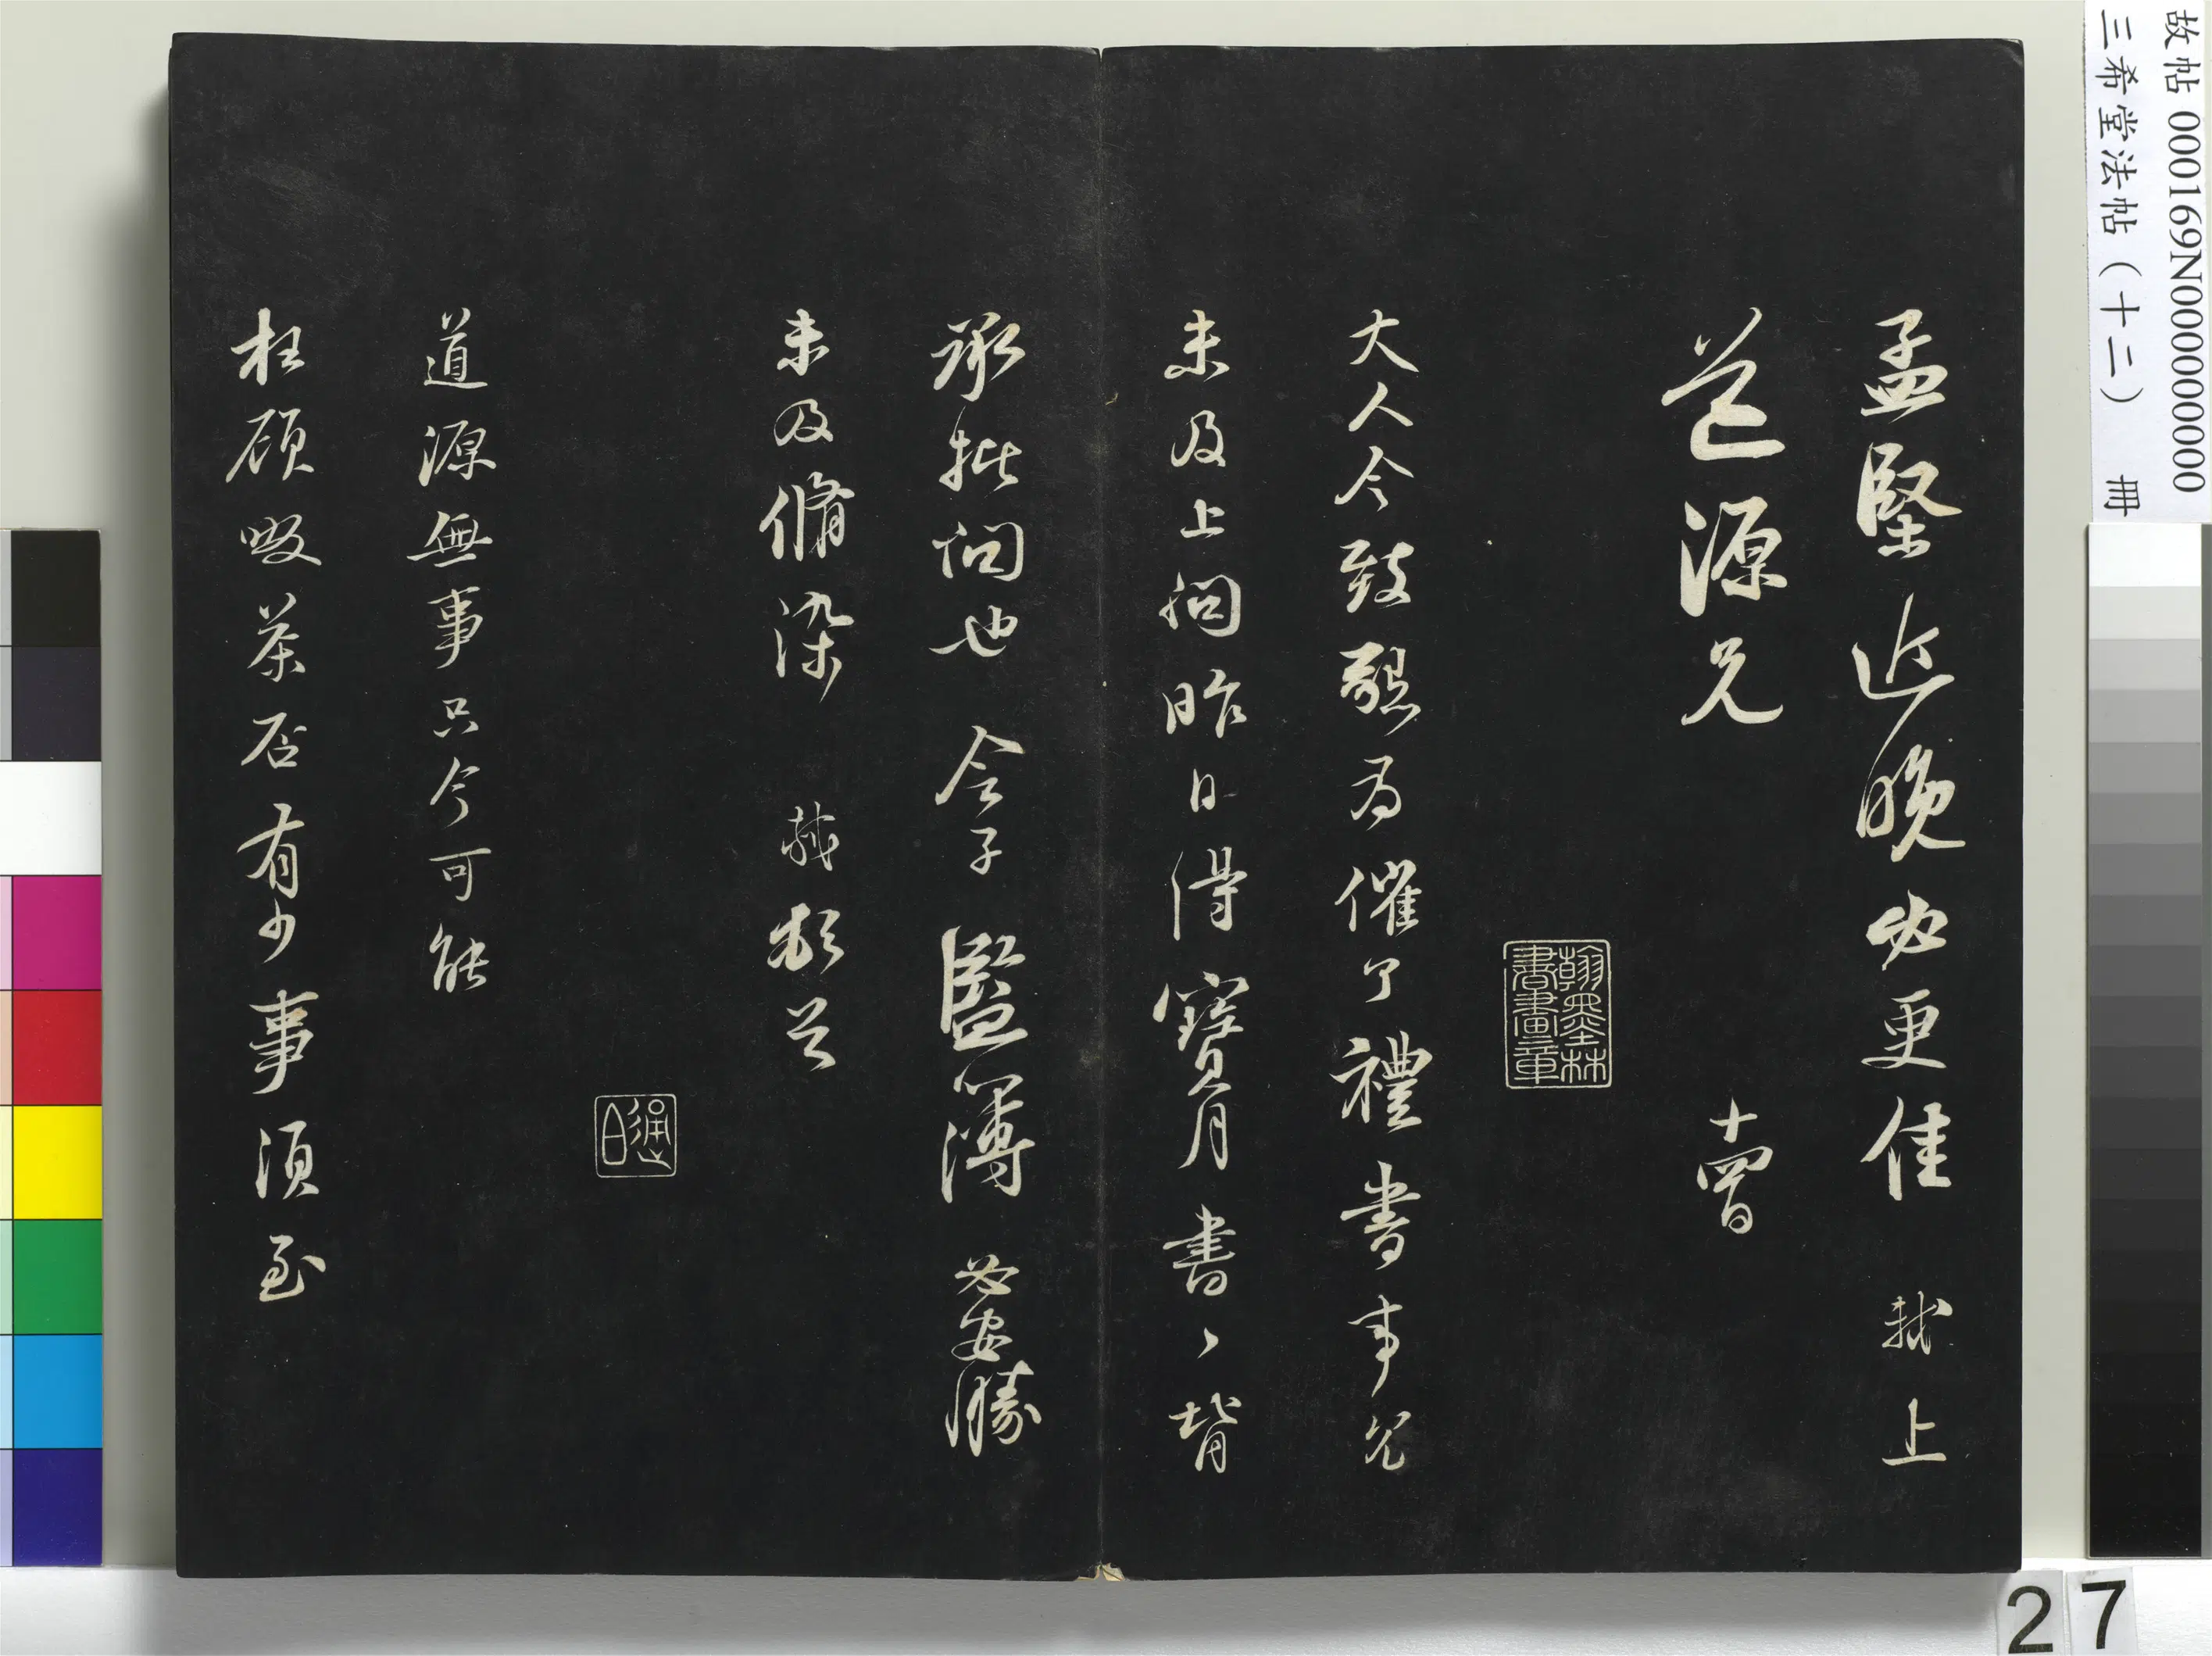 孟堅近晚必更佳 軾上
道源兄 十曾
大人令致懇為催了禮書事冗
未及上問昨日得寶月書〻背
承批問也令子監簿必安勝
未及脩染 軾頓首
道源無事只今可能
枉顧啜茶否有少事須至
翰墨林書畫章
故帖 000169N000000000
三希堂法帖(十二) 冊
27